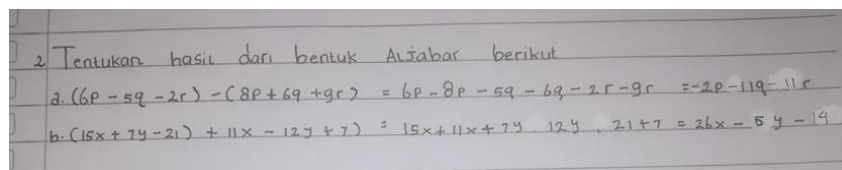 2 Tentukan hasil dari bentuk Aljabar berikut
a. (6p - 5q - 2r) - (8p + 6q + 9r) = 6p - 8p - 5q - 6q - 2r - 9r = -2p - 11q - 11r
b. (15x + 7y - 21) + 11x - 12y + 7) = 15x + 11x + 7y . 12y . 21 + 7 = 26x - 5y - 14